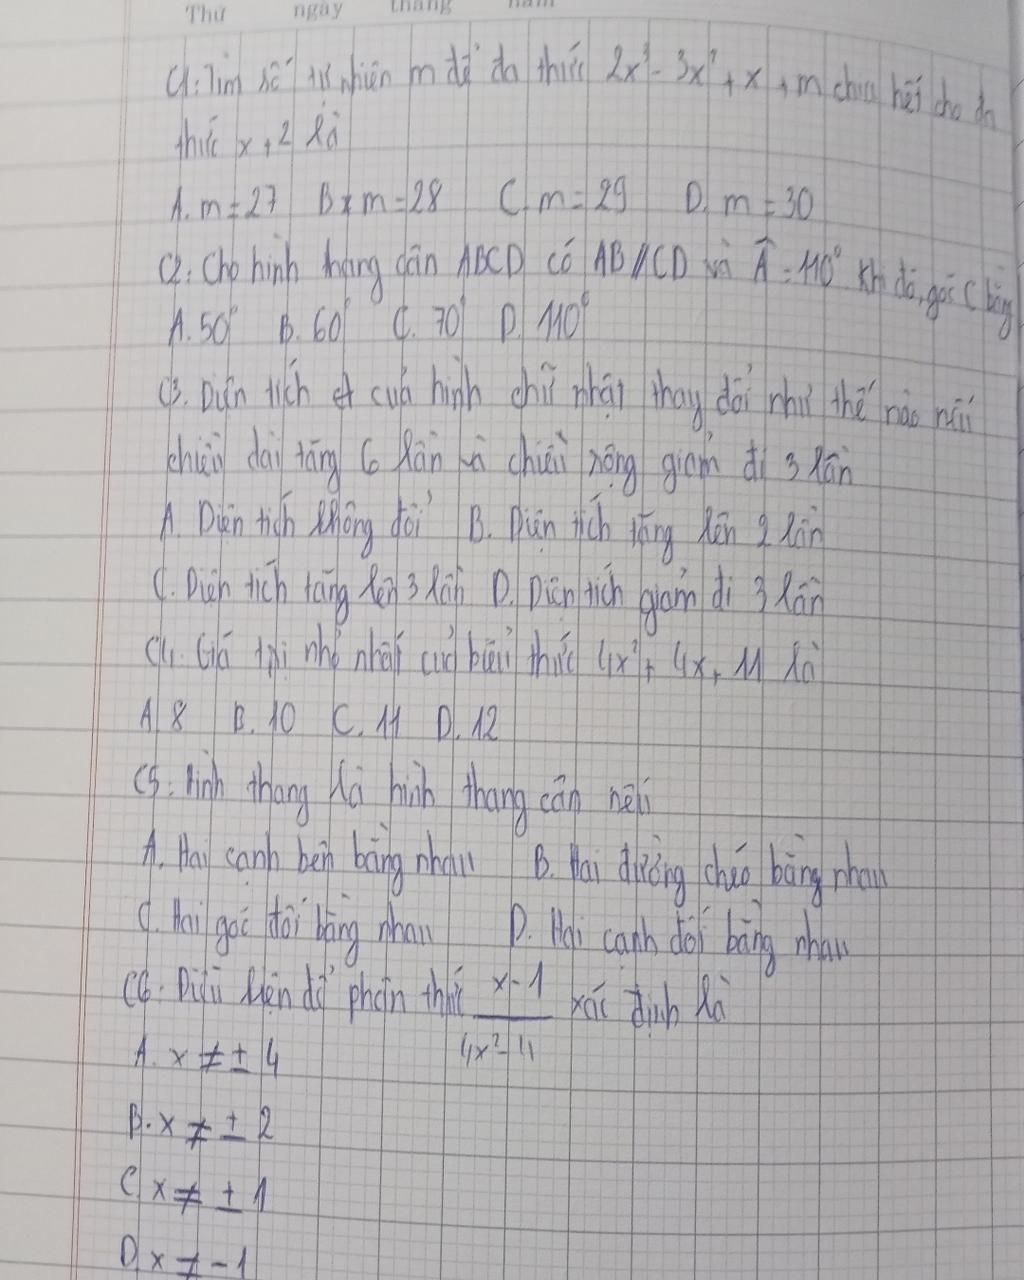 Thứ ngày tháng năm
C1: Tìm số tự nhiên m để đa thức 2x³ - 3x² + x + m chia hết cho đa
thức x + 2 là
A. m = 27 B. m = 28 C. m = 29 D. m = 30
C2: Cho hình thang cân ABCD có AB // CD và Â = 110° Khi đó, góc C bằng
A. 50° B. 60° C. 70° D. 110°
C3. Diện tích của hình chữ nhật thay đổi như thế nào nếu
chiều dài tăng 6 lần và chiều rộng giảm đi 3 lần
A. Diện tích không đổi B. Diện tích tăng lên 2 lần
C. Diện tích tăng lên 3 lần D. Diện tích giảm đi 3 lần
C4. Giá trị nhỏ nhất của biểu thức 4x² + 4x + 11 là
A 8 B. 10 C. 11 D. 12
C5: Hình thang là hình thang cân nếu
A. Hai cạnh bên bằng nhau B. Hai đường chéo bằng nhau
C. Hai góc đối bằng nhau D. Hai cạnh đối bằng nhau
C6. Điều kiện để phân thức x - 1 / 4x² - 4 xác định là
A. x ≠ ± 4
B. x ≠ ± 2
C x ≠ ± 1
D x ≠ - 1